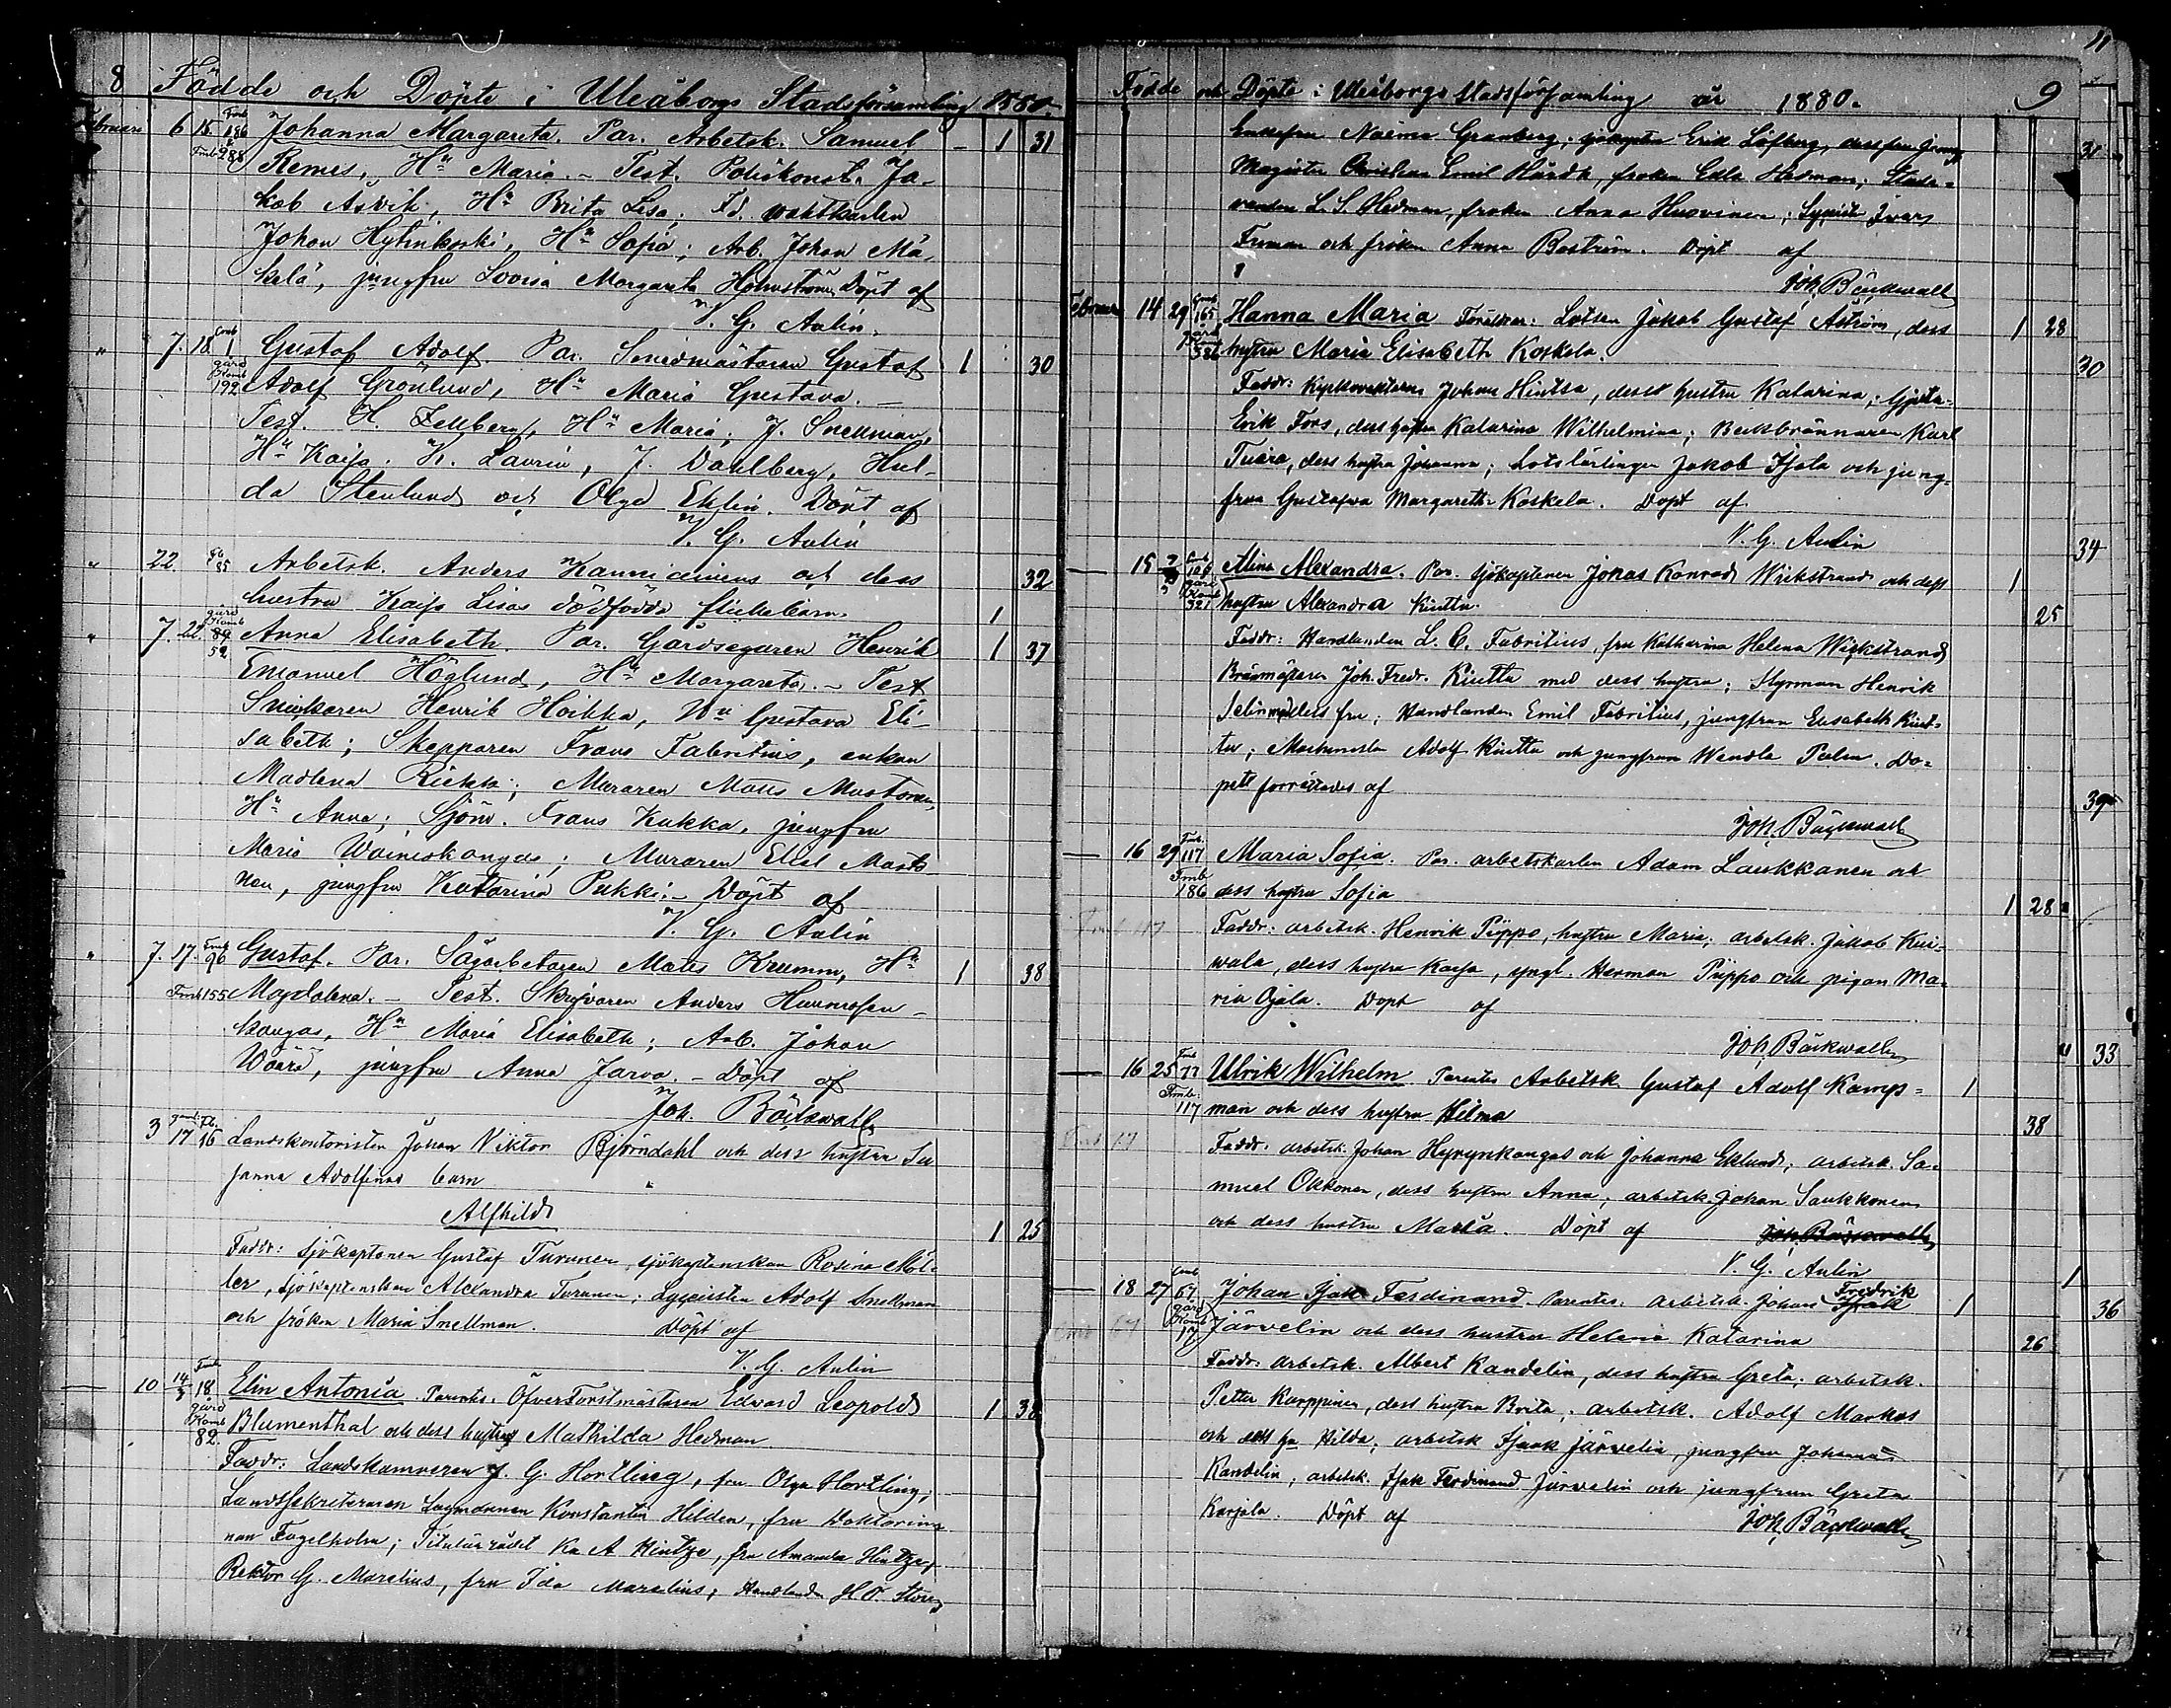 8 Födde och Döpte i Uleåborgs Stadsförsamling 1880.
Februari 6 15 186 Johanna Margareta. Par. Arbetsk. Samuel - 1 31
Fmb 288 Remes, Hu Maria. - Test. Poliskonst. Ja-
kob Asvik, Hu Brita Lisa; Fd. vaktkarlen
Johan Hylinkoski, Hu Sofia; Arb. Johan Mä-
kelä, jungfru Lovisa Margareta Holmström Döpt af
V. G. Aulin.
" 7. 18. 1 Gustaf Adolf Par. Smedmästaren Gustaf 1 30
gård Komb 192 Adolf Grönlund, Hu Maria Gustava. -
Test. H. Zellberg, Hu Maria; J. Snellman,
Hu Kaisa; K. Laurin, J. Dahlberg, Hul-
da Stenlund och Olga Eklin. Döpt af
V. G. Aulin
" 22. 85 Arbetsk. Anders Kannianinens och dess 32
hustru Kaisa Lisas dödfödda flickebarn. 1
" 7. 22. gård Komb 89 52 Anna Elisabeth. Par. Gårdsegaren Henrik 1 37
Emanuel Höglund, Hu Margareta. - Test.
Snickaren Henrik Hoikka, Hu Gustava Eli-
sabeth; Skepparen Frans Fabritius, enkan
Madlena Riekki; Muraren Matts Mustonen,
Hu Anna; Sjöm. Frans Kukka, jungfru
Maria Wainiokangas; Muraren Eliel Musto-
nen, jungfru Katarina Pukki. - Döpt af
V. G. Aulin
" 7. 17. Fmb 96 Gustaf. Par. Sågarbetaren Matts Krumm, Hu 1 38
Fmb 155 Magdalena. - Test. Skrifvaren Anders
kangas, Hu Maria Elisabeth; Arb. Johan
Wäärä, jungfru Anna Jarva. - Döpt af
Joh. Bäckwall
3 17 16 Landskontoristen Johan Viktor Björndahl och dess hustru Su
sanna Adolfinas barn
Alfhild 1 25
Faddr: Sjökaptenen Gustaf Turunen, sjökaptenskan Rosina Möl-
ler, Sjökaptenskan Alexandra Turunen; Lyceisten Adolf Snellman
och fröken Maria Snellman. Döpt af
V. G. Aulin
10 14/3 18. Elin Antonia. Parentes. Öfverforstmästaren Edward Leopold 1 38
gård Komb 82. Blumenthal och dess hustru Mathilda Hedman
Faddr: Landskamreren J. G. Hortling, fru Olga Hortling;
Landssekreteraren Lagmannen Konstantin Hilden, fru Doktorin-
nan Fagelholm; Titulärrådet K. A Hintze, fru Amanda Hintze,
Rektor G. Marelius, fru Ida Marelius; Handlanden H. O.
11
Födde och Döpte i Uleåborgs Stadsförsamling år 1880. 9
Naëma Granberg; sjökapten Erik Löfberg, dess fru
Magister Christian Emil fröken Edla Hedman; Stude-
randen L. S. Hedman, fröken Anna Huovinen; Lyceisten Ivar
Furuman och fröken Anna Boström. Döpt af
Joh. Bäckwall
Februari 14 29 165 Hanna Maria Föräldrar: Lotsen Jakob Gustaf Åström, dess 1 28
gård Komb 386 hustru Maria Elisabeth Koskela.
Faddr: Johan Hintsa, dess hustru Katarina;
Erik Fors, dess hustru Katarina Wilhelmina; Beckbrännaren Karl
Tuira, dess hustru Johanna; Lotslärlingen Jakob Ojala och jung-
frun Gustafva Margaretha Koskela. Döpt af
V. G. Aulin
15 gård Komb 321 Mina Alexandra. Par. Sjökaptenen Jonas Konrad Wickstrand och dess 1
hustru Alexandra Kiuttu. 25
Faddr: Handlanden L. C. Fabritius, fru Katharina Helena Wickstrand
Joh. Fredr. Kiuttu med dess hustru; Styrman Henrik
Selin med dess fru; Handlanden Emil Fabritius, jungfrun Elisabeth Kiut-
tu; Adolf Kiuttu och jungfrun Wendla Palin. Do-
pett förrättades af
Joh. Bäckwall
16 29 117 Maria Sofia. Par. arbetskarlen Adam Laukkanen och
Fmb 186 dess hustru Sofia 1 28
Faddr: arbetsk. Henrik Piippo, hustru Maria; arbetsk. Jakob Kui-
vala, dess hustru Kaisa, yngl. Herman Piippo och pigan Ma-
ria Ojala. Döpt af
Joh. Bäckwall
16 25 77 Ulrik Wilhelm Parentes Arbetsk. Gustaf Adolf Kamps- 1
Fmb. 117 man och dess hustru Hilma 38
Faddr. arbetsk. Johan Hyrynkangas och Johanna Eklund; arbetsk. Sa-
muel Okkonen, dess hustru Anna; arbetsk. Johan Saukkonen
och dess hustru Maria. Döpt af Joh. Bäckwall
V. G. Aulin
18 27 67 Johan Isak Ferdinand. Parentes. arbetsk. Johan Isak Fredrik 1
gård Komb 17 Järvelin och dess hustru Helena Katarina 26
Faddr. arbetsk. Albert Kandelin, dess hustru Greta; arbetsk.
Petter Karppinen, dess hustru Brita; arbetsk. Adolf Markus
och dess hu Hilda; arbetsk Isaak Järvelin, jungfru Johanna
Kandelin; arbetsk. Isak Ferdinand Järvelin och jungfrun Greta
Karjala. Döpt af Joh. Bäckwall
30
34
39
33
1
36